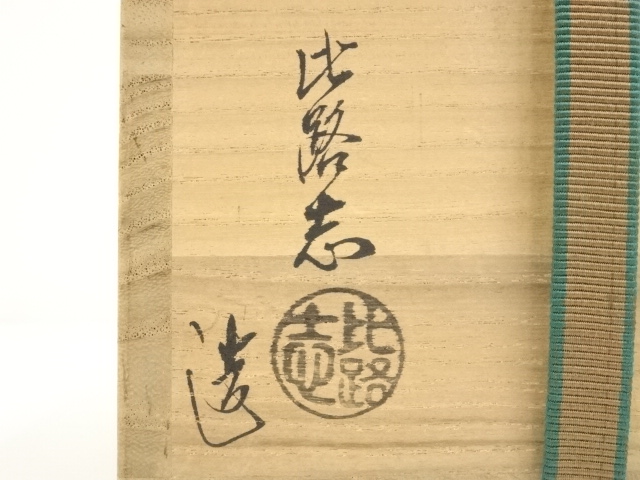 比路志
造
比路志